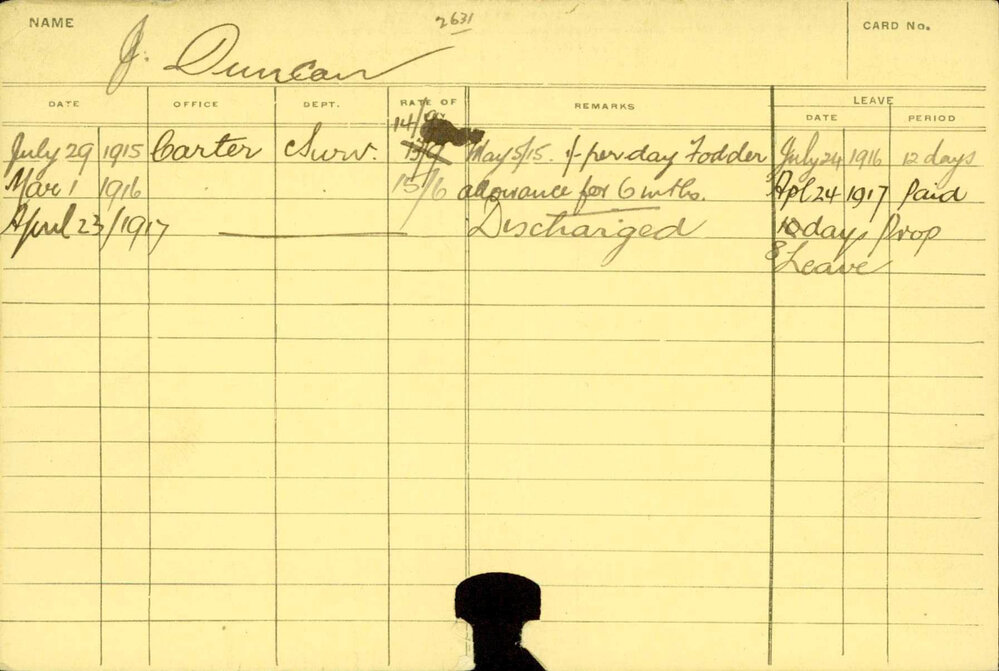 NAME 2631 CARD No.
J. Duncan
DATE OFFICE DEPT. RATE OF REMARKS LEAVE
DATE PERIOD
14/9
July 29 1915 Carter Surv. 13/9 May 5/15. /- per day Fodder July 24 1916 12 days
Mar 1 1916 15/6 allowance for 6 mths. Apl 24 1917 Paid
April 23/1917 Discharged 10 days Prop
8 Leave